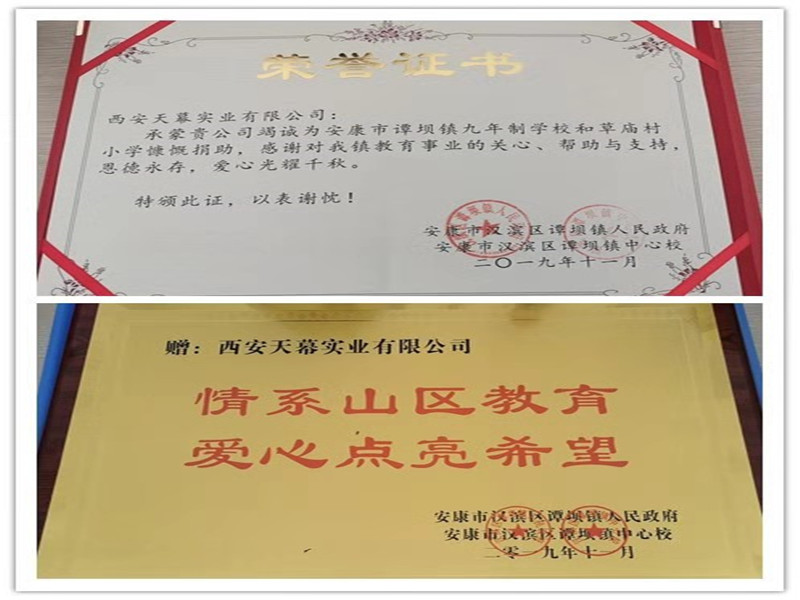 荣誉证书
西安天幕实业有限公司：
承蒙贵公司竭诚为安康市谭坝镇九年制学校和草庙村
小学慷慨捐助，感谢对我镇教育事业的关心、帮助与支持，
恩德永存，爱心光耀千秋。
特颁此证，以表谢忱！
安康市汉滨区谭坝镇人民政府
安康市汉滨区谭坝镇中心校
二〇一九年十一月
赠：西安天幕实业有限公司
情系山区教育
爱心点亮希望
安康市汉滨区谭坝镇人民政府
安康市汉滨区谭坝镇中心校
二零一九年十一月